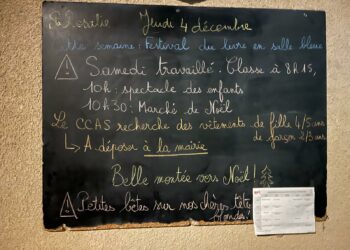 Jeudi 4 décembre
Cette semaine : Festival du livre en salle bleue
Samedi travaillé. Classe à 8h15,
10h : spectacle des enfants
10h30 : Marché de Noël
Le CCAS recherche des vêtements de fille 4/5 ans
de garçon 2/3 ans
↳ A déposer à la mairie
Belle montée vers Noël !
Petites bêtes sur nos chères têtes
blondes !